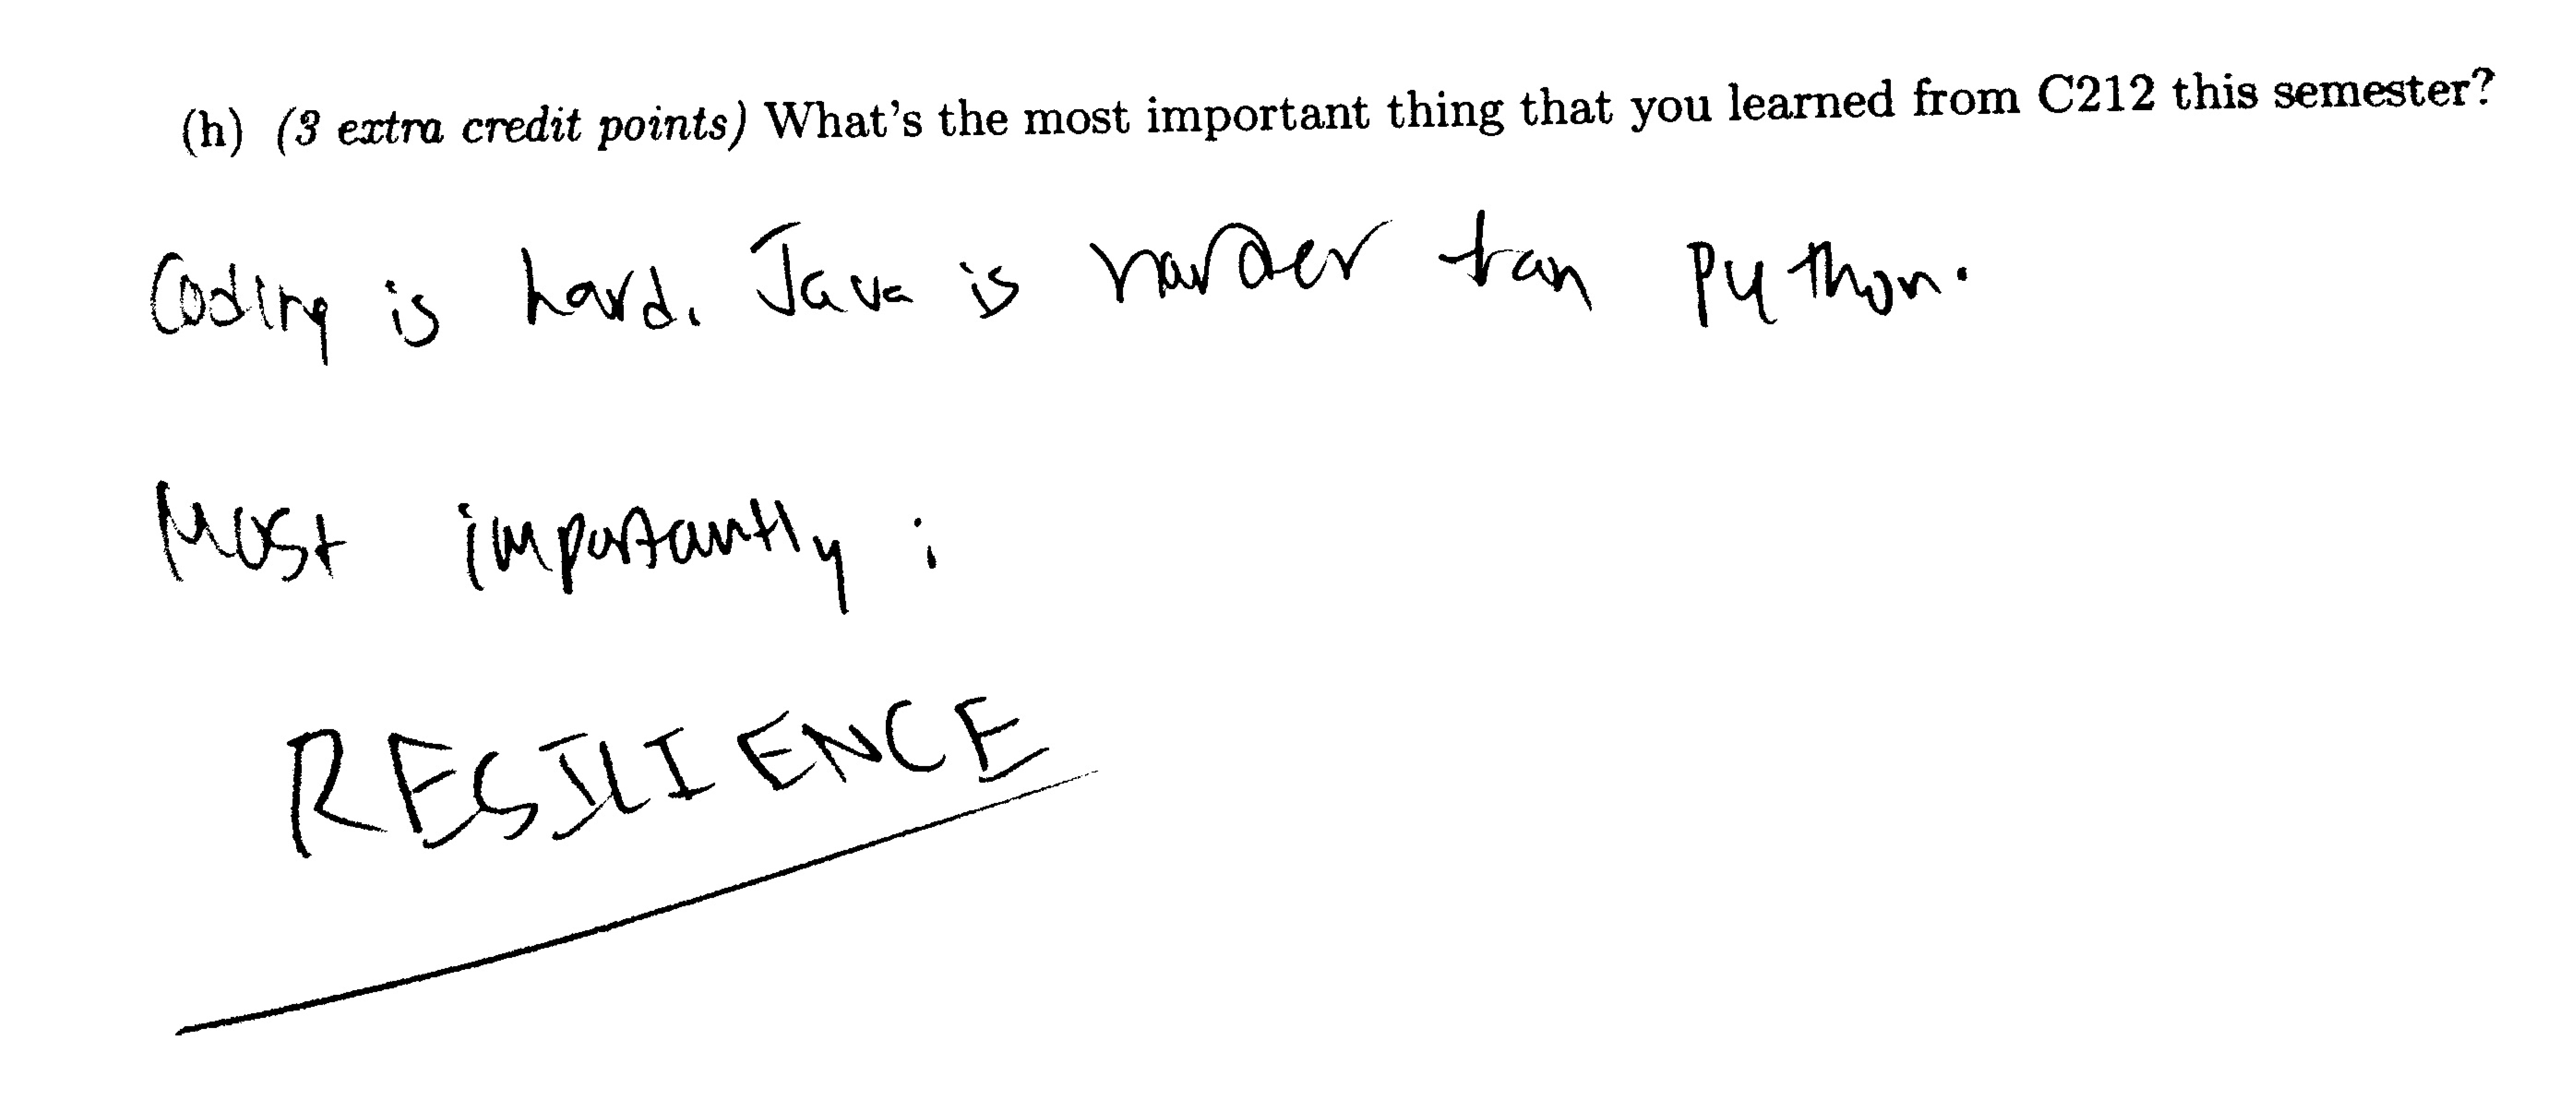 (h) (3 extra credit points) What's the most important thing that you learned from C212 this semester?
Coding is hard. Java is harder tan Python.
Most importantly :
RESILIENCE